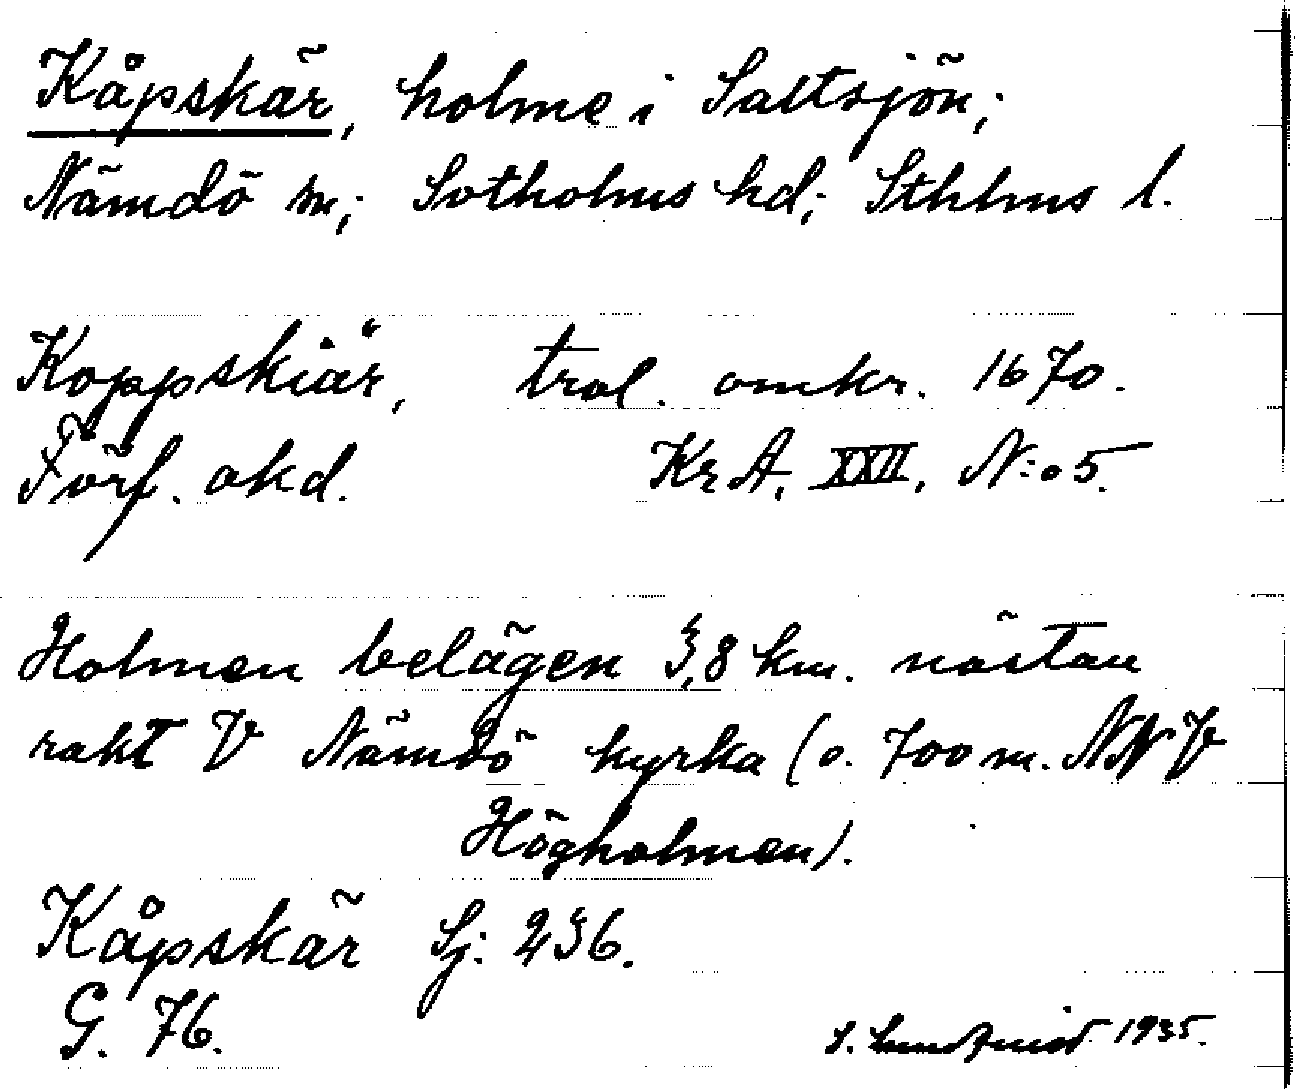 Kåpskär, holme i Saltsjön;
Nämdö sn; Sotholms hd; Sthlms l.
Koppskiär, trol. omkr. 1670.
Förf. okd. KrA, XXII, N:o 5.
Holmen belägen 3,8 km. nästan
rakt V Nämdö kyrka (o. 700 m. NNV
Högholmen).
Kåpskär Sj: 236.
G. 76.
S. Lundquist 1935.